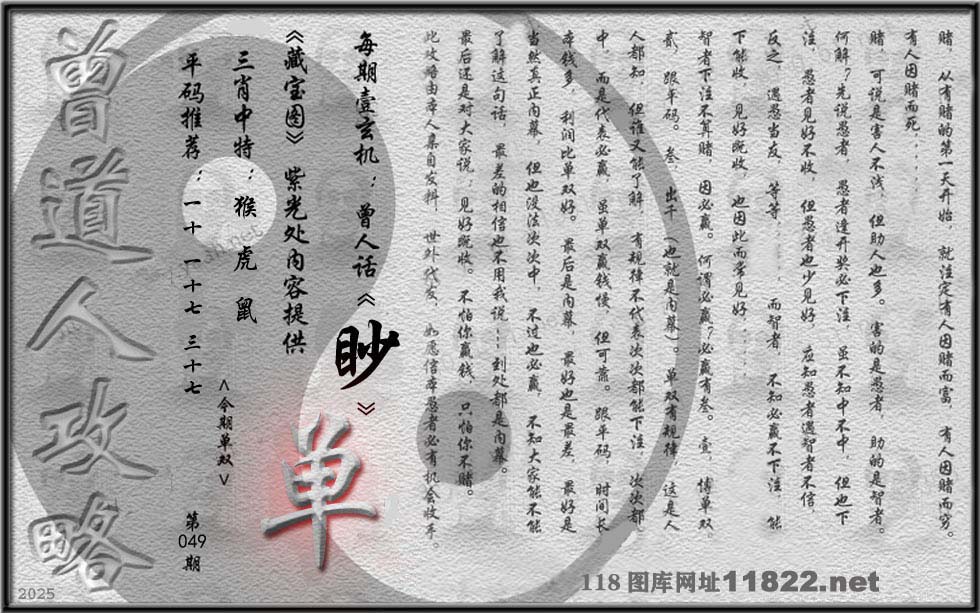 赌，从有赌的第一天开始，就注定有人因赌而富，有人因赌而穷。
有人因赌而死......
赌，可说是害人不浅，但助人也多。害的是愚者，助的是智者。
何解？先说愚者，愚者逢开奖必下注，虽不知中不中，但也下
注，愚者见好不收，但愚者也少见好，应知愚者遇智者不信，
反之，遇愁当友，等等......而智者，不知必赢不下注，能
下能收，见好既收，也因此而常见好....
智者下注不算赌，因必赢。何谓必赢？必赢有叁。壹，博单双，
贰，跟平码。叁，出千（也就是内幕）。单双有规律，这是人
人都知，但谁又能了解，有规律不代表次次都能下注，次次都
中，而是代表必赢，虽单双赢钱慢，但可靠。跟平码，时间长，
本钱多，利润比单双好。最后是内幕，最好也是最差，最好是
当然真正内幕，但也没法次次中，不过也必赢，不知大家能不能
了解这句话，最差的相信也不用我说...到处都是内幕。
最后还是对大家说：见好既收。不怕你赢钱，只怕你不赌。
此攻略由本人集自发料，世外代友，如愿信本愚者必有机会收手。
每期壹玄机：曾人话《眇》
《藏宝图》紫光处内容提供
三肖中特：猴 虎 鼠
平码推荐：一十一 十七 三十七
<今期单双>
单
第049期
曾道人攻略
2025
118图库网址11822.net